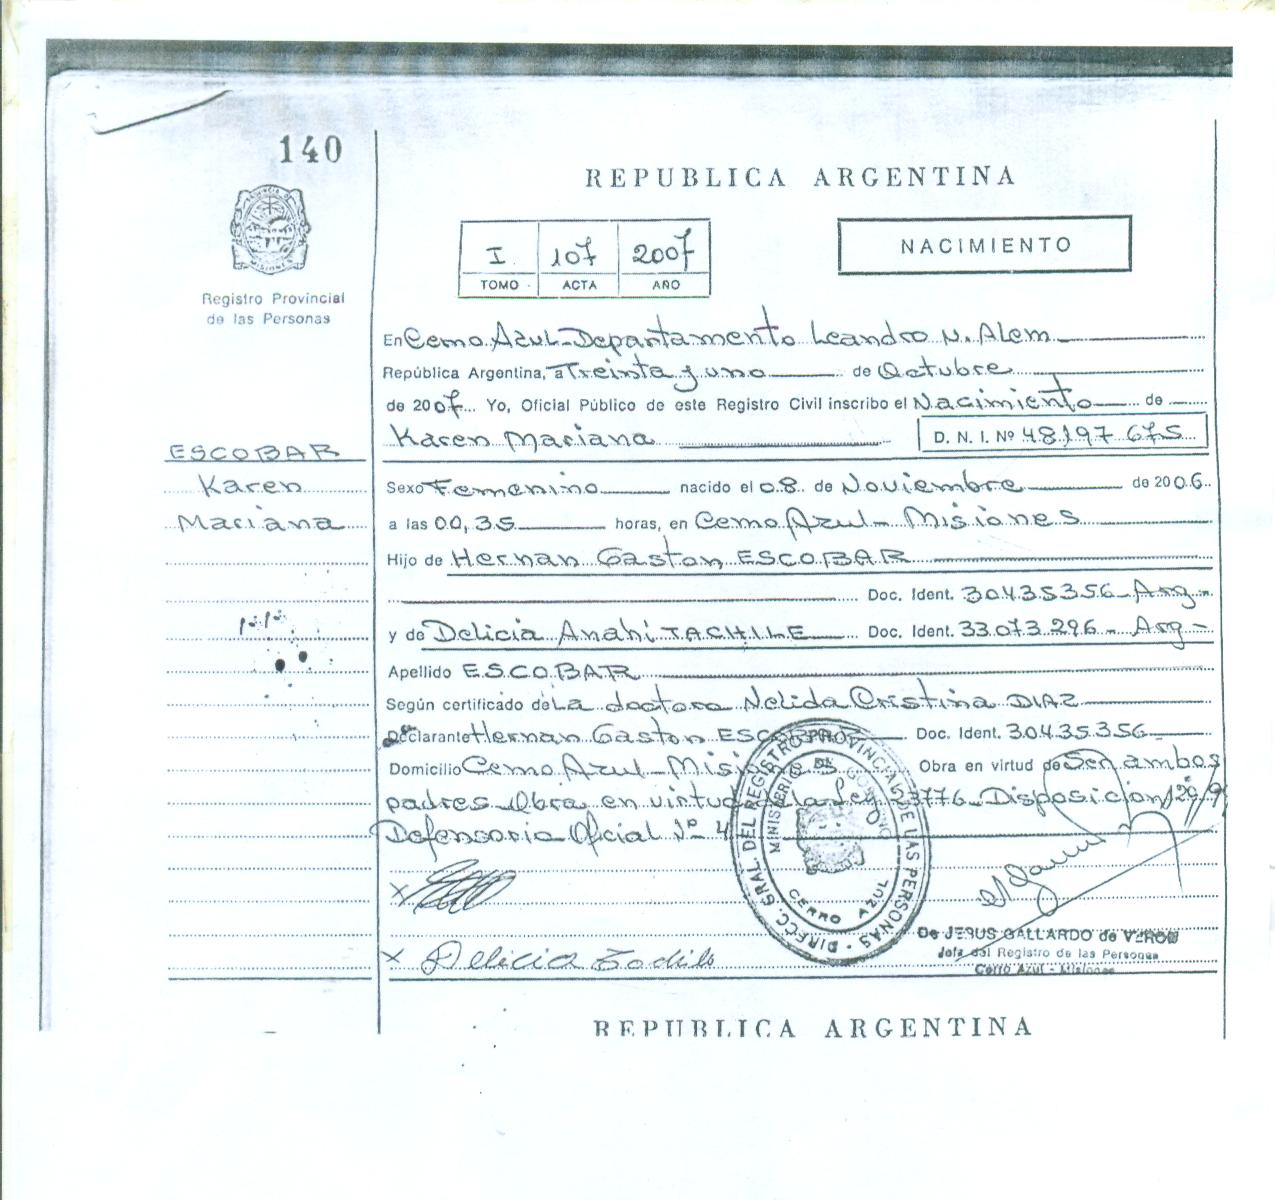 140
REPUBLICA ARGENTINA
I 107 2007
TOMO ACTA AÑO
NACIMIENTO
Registro Provincial
de las Personas
En Cerro Azul - Departamento Leandro N. Alem
República Argentina, a Treinta y uno de Octubre
de 2007 Yo, Oficial Público de este Registro Civil inscribo el Nacimiento de
Karen Mariana D. N. I. Nº 48.197 675
ESCOBAR
Karen
Mariana
Sexo Femenino nacido el 08 de Noviembre de 2006
a las 00,35 horas, en Cerro Azul - Misiones
Hijo de Hernan Gaston ESCOBAR
Doc. Ident. 30.435.356 - Arg -
y de Delicia Anahi TACHILE Doc. Ident. 33.073.296 - Arg -
Apellido ESCOBAR
Según certificado de La doctora Nelida Cristina DIAZ
Declarante Hernan Gaston ESCOBAR Doc. Ident. 30.435.356
Domicilio Cerro Azul - Misiones Obra en virtud de Ser ambos
padres - Obra en virtud de la Ley 3776 - Disposicion
Defensoria Oficial Nº 4
DIRECC. GRAL. DEL REGISTRO PROVINCIAL DE LAS PERSONAS
MINISTERIO DE GOBIERNO
CERRO AZUL
X
X Delicia
De JESUS GALLARDO de VERON
Jefa del Registro de las Personas
Cerro Azul - Misiones
REPUBLICA ARGENTINA